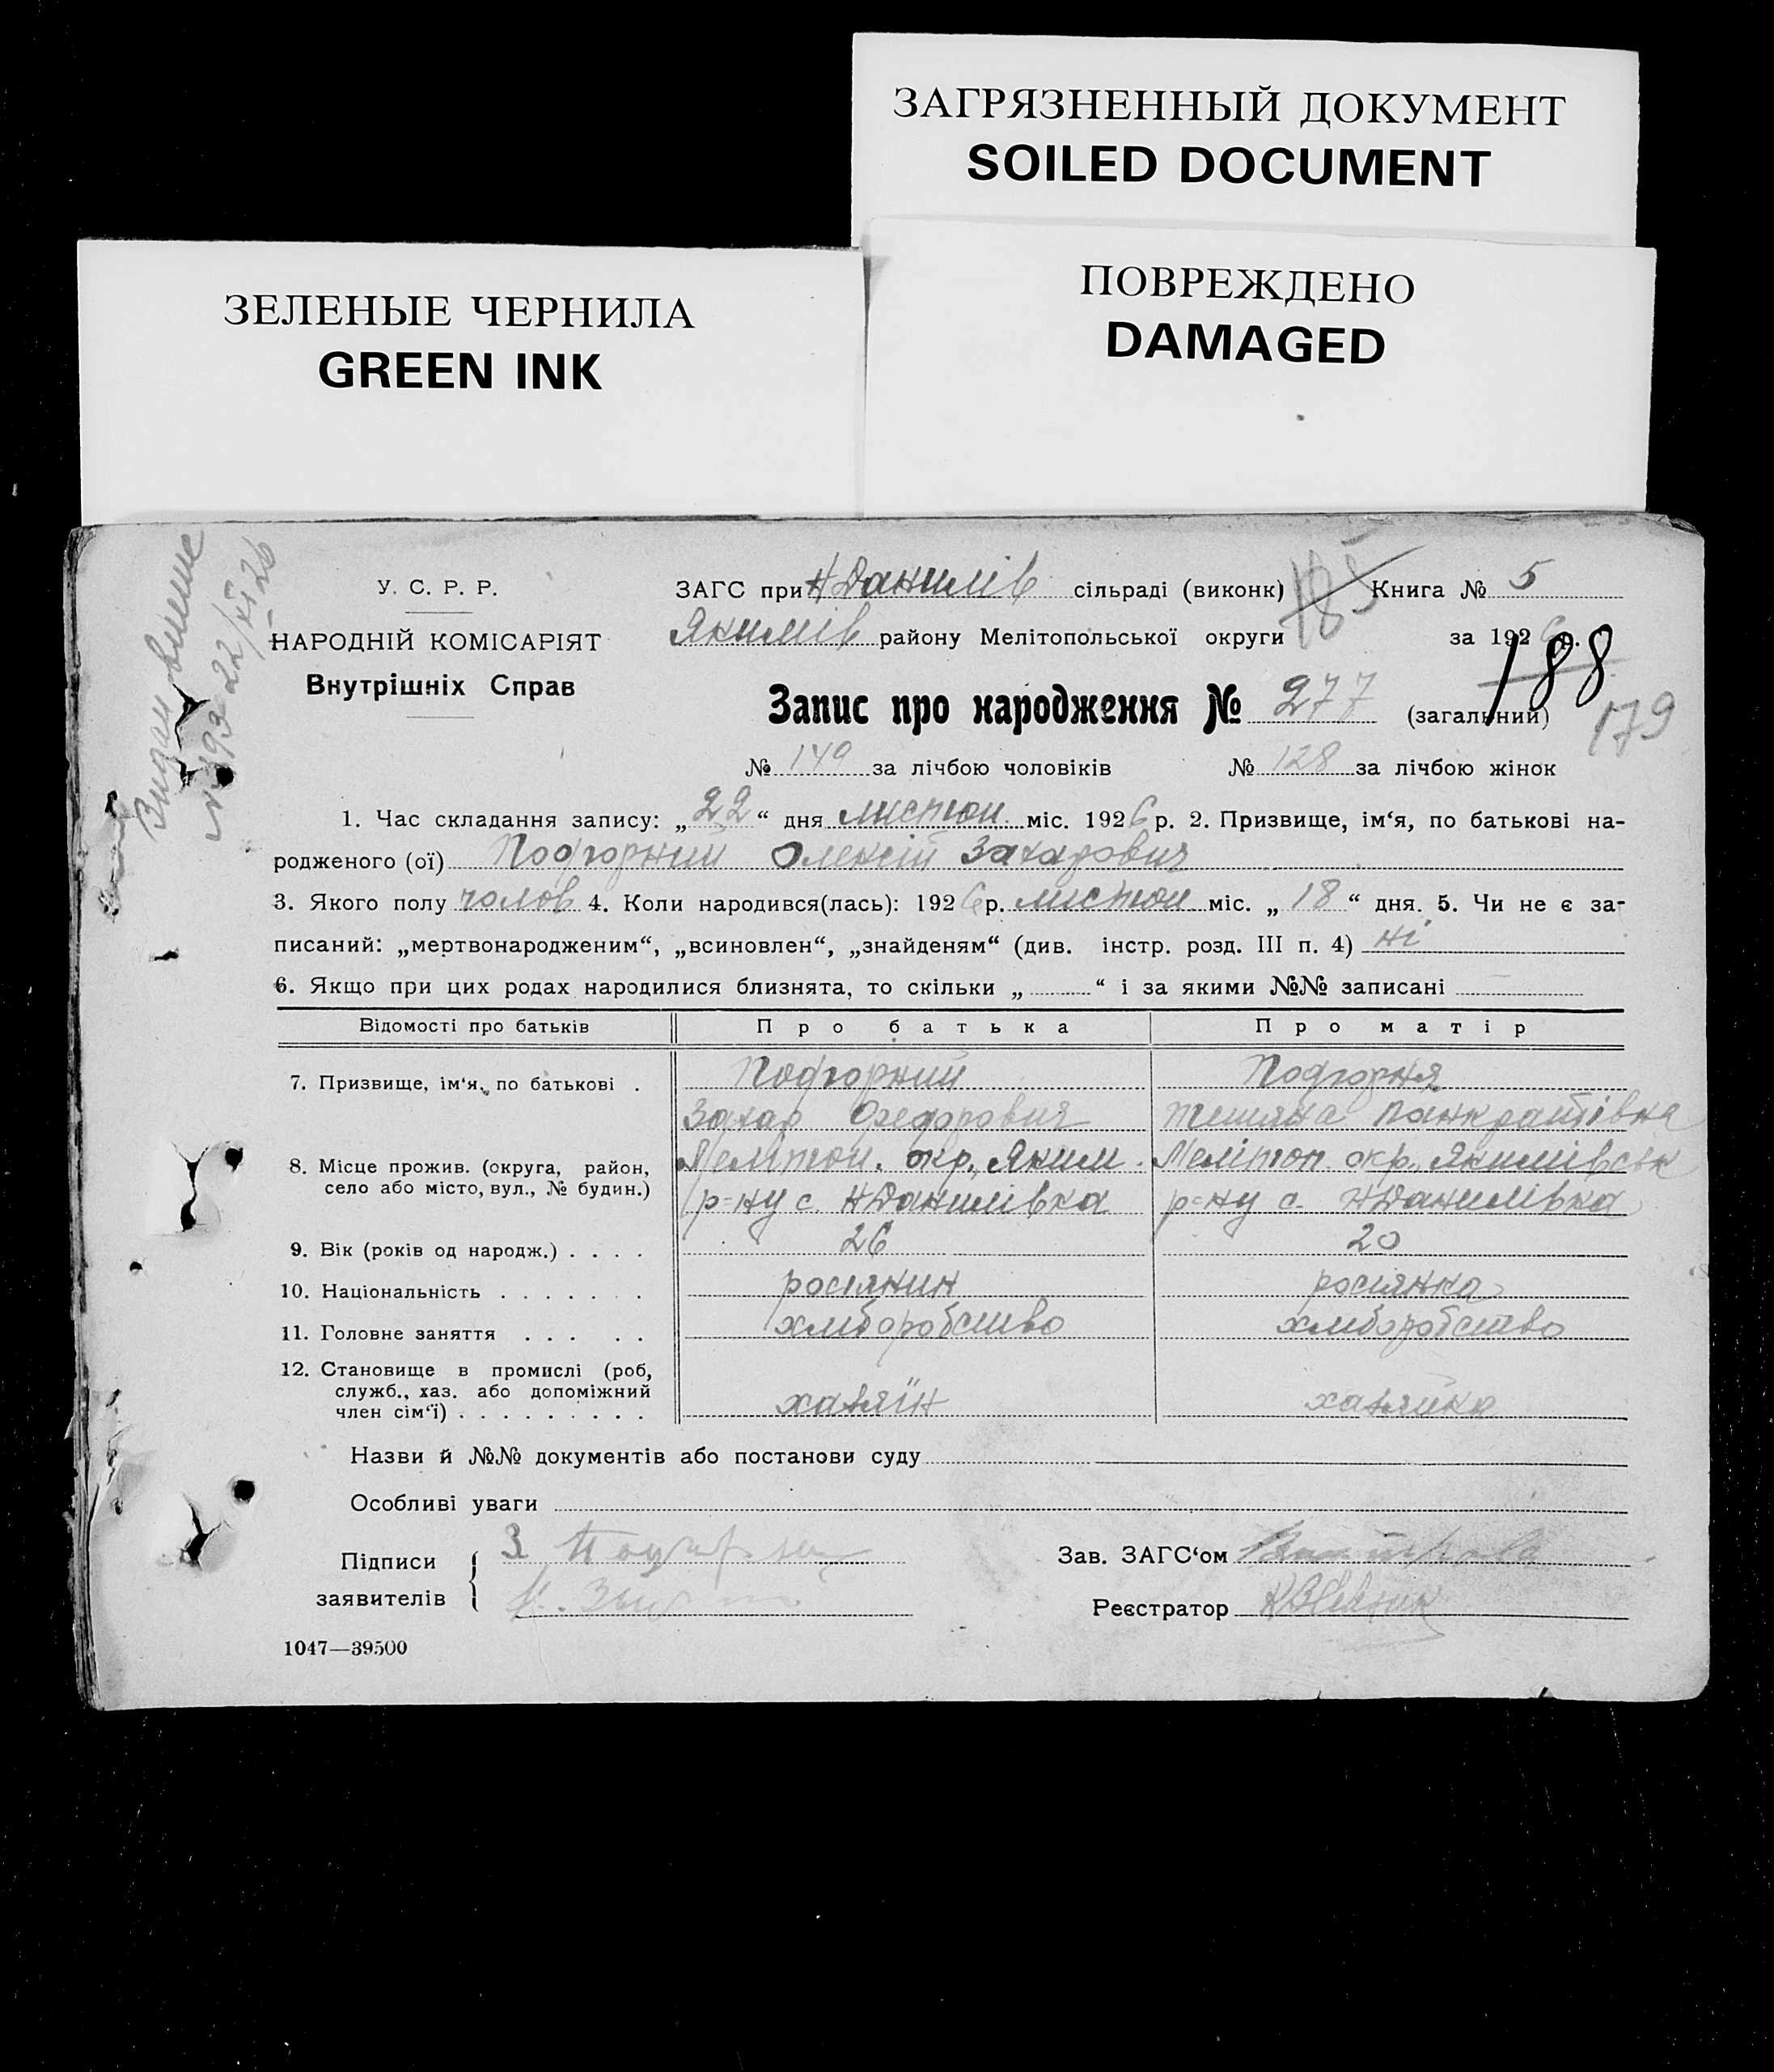 ЗАГРЯЗНЕННЫЙ ДОКУМЕНТ
SOILED DOCUMENT
ЗЕЛЕНЫЕ ЧЕРНИЛА
GREEN INK
ПОВРЕЖДЕНО
DAMAGED
У. С. Р. Р.
НАРОДНІЙ КОМІСАРІЯТ
Внутрішніх Справ
ЗАГС при НДанилів сільраді (виконк)
185
Книга № 5
Якимів району Мелітопольської округи
за 1926 р.
188
Запис про народження № 277 (загальний)
179
№ 149 за лічбою чоловіків № 128 за лічбою жінок
22/XI 26
1. Час складання запису: „22“ дня листоп. міс. 1926 р. 2. Призвище, ім‘я, по батькові на-
родженого (ої) Подгорний Олексій Захарович
3. Якого полу чолов 4. Коли народився(лась): 1926 р. листоп міс. „18“ дня. 5. Чи не є за-
писаний: „мертвонародженим“, „всиновлен“, „знайденям“ (див. інстр. розд. III п. 4) ні
6. Якщо при цих родах народилися близнята, то скільки „ “ і за якими №№ записані
Відомості про батьків Про батька Про матір
7. Призвище, ім‘я, по батькові . Подгорний Подгорня
Захар Федорович Тетяна Панкратівна
8. Місце прожив. (округа, район, Мелітоп. окр., Яким. Меліпоп окр., Якимівськ
село або місто, вул., № будин.) р=ну с. НДанилівка р=ну с. НДанилівка
9. Вік (років од народж.) . . . . 26 20
10. Національність . . . . . . . росіянин росіянка
11. Головне заняття . . . . . хліборобство хліборобство
12. Становище в промислі (роб,
служб., хаз. або допоміжний
член сім‘ї) . . . . . . . . . хазяїн хазяйка
Назви й №№ документів або постанови суду
Особливі уваги
Підписи
заявителів
З
Зав. ЗАГС‘ом
Реєстратор
1047—39500